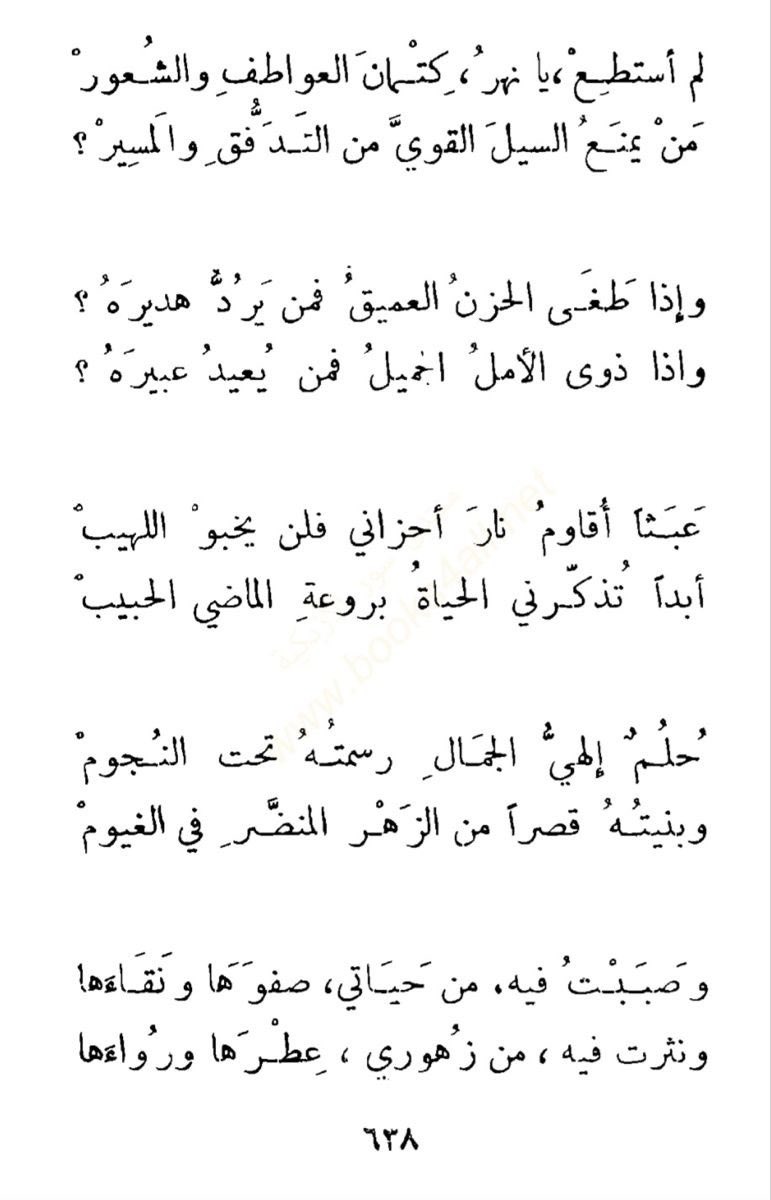 لم أستطِعْ، يا نهرُ، كِتْمانَ العواطفِ والشُعورْ
مَنْ يمنَعُ السيلَ القويَّ من التَدَفُّقِ والمَسِيرْ ؟
وإذا طَغَى الحزنُ العميقُ فمن يَرُدُّ هديرَهُ ؟
واذا ذوى الأملُ الجميلُ فمن يُعيدُ عبيرَهُ ؟
عَبَثاً أُقاومُ نارَ أحزاني فلن يخبوْ اللهيبْ
أبداً تُذكّرني الحياةُ بروعةِ الماضي الحبيبْ
حُلُمٌ إلهيُّ الجمَالِ رسمتُهُ تحت النُجومْ
وبنيتُهُ قصراً من الزَهْر المنضَّرِ في الغيومْ
وصَبَبْتُ فيه، من حَيَاتي، صفوَهَا ونَقَاءَها
ونثرت فيه ، من زُهوري ، عِطْرَها ورُواءَها
٦٣٨
www.books4all.net